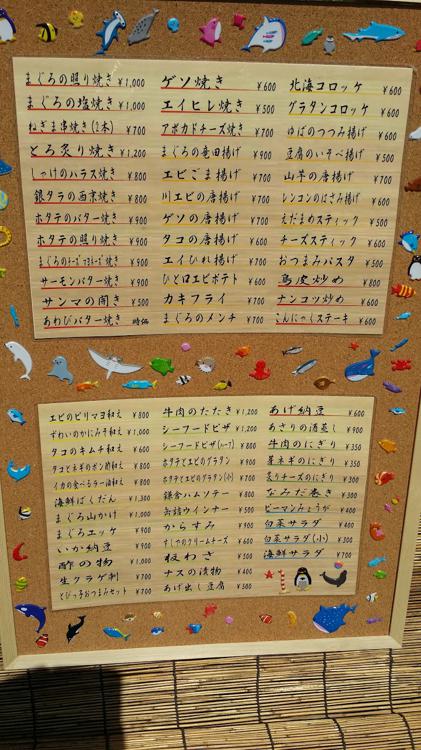 まぐろの照り焼き ¥1,000
まぐろの塩焼き ¥1,000
ねぎま串焼き(2本) ¥700
とろ炙り焼き ¥1,200
しゃけのハラス焼き ¥800
銀タラの西京焼き ¥800
ホタテのバター焼き ¥900
ホタテの照り焼き ¥900
まぐろのチーズマヨネーズ焼き ¥900
サーモンバター焼き ¥900
サンマの開き ¥500
あわびバター焼き 時価
ゲソ焼き ¥600
エイヒレ焼き ¥500
アボカドチーズ焼き ¥700
まぐろの竜田揚げ ¥900
エビごま揚げ ¥700
川エビの唐揚げ ¥700
ゲソの唐揚げ ¥700
タコの唐揚げ ¥700
エイひれ揚げ ¥700
ひと口エビポテト ¥600
カキフライ ¥700
まぐろのメンチ ¥700
北海コロッケ ¥600
グラタンコロッケ ¥600
ゆばのつつみ揚げ ¥700
豆腐のいそべ揚げ ¥500
山芋の唐揚げ ¥700
レンコンのはさみ揚げ ¥600
えだまめスティック ¥500
チーズスティック ¥600
おつまみパスタ ¥500
鳥皮炒め ¥800
ナンコツ炒め ¥600
こんにゃくステーキ ¥600
エビのピリマヨ和え ¥800
ずわいのかにみそ和え ¥1,000
タコのキムチ和え ¥600
タコとネギのポン酢和え ¥800
イカの食べるラー油和え ¥800
海鮮ばくだん ¥1,300
まぐろ山かけ ¥1,000
まぐろユッケ ¥900
いか納豆 ¥900
酢の物 ¥1,000
生クラゲ刺 ¥700
とびっ子おつまみセット ¥700
牛肉のたたき ¥1,200
シーフードピザ ¥1,200
シーフードピザ(ハーフ) ¥800
ホタテとエビのグラタン ¥900
ホタテとエビのグラタン(小) ¥700
鎌倉ハムソテー ¥800
缶詰ウインナー ¥500
からすみ ¥900
すしやのクリームチーズ ¥600
板わさ ¥500
ナスの漬物 ¥400
あげ出し豆腐 ¥500
あげ納豆 ¥600
あさりの酒蒸し ¥900
牛肉のにぎり ¥350
芽ネギのにぎり ¥350
炙りチーズのにぎり ¥200
なみだ巻き ¥300
ピーマンみょうが ¥400
白菜サラダ ¥400
白菜サラダ(小) ¥300
海鮮サラダ ¥700